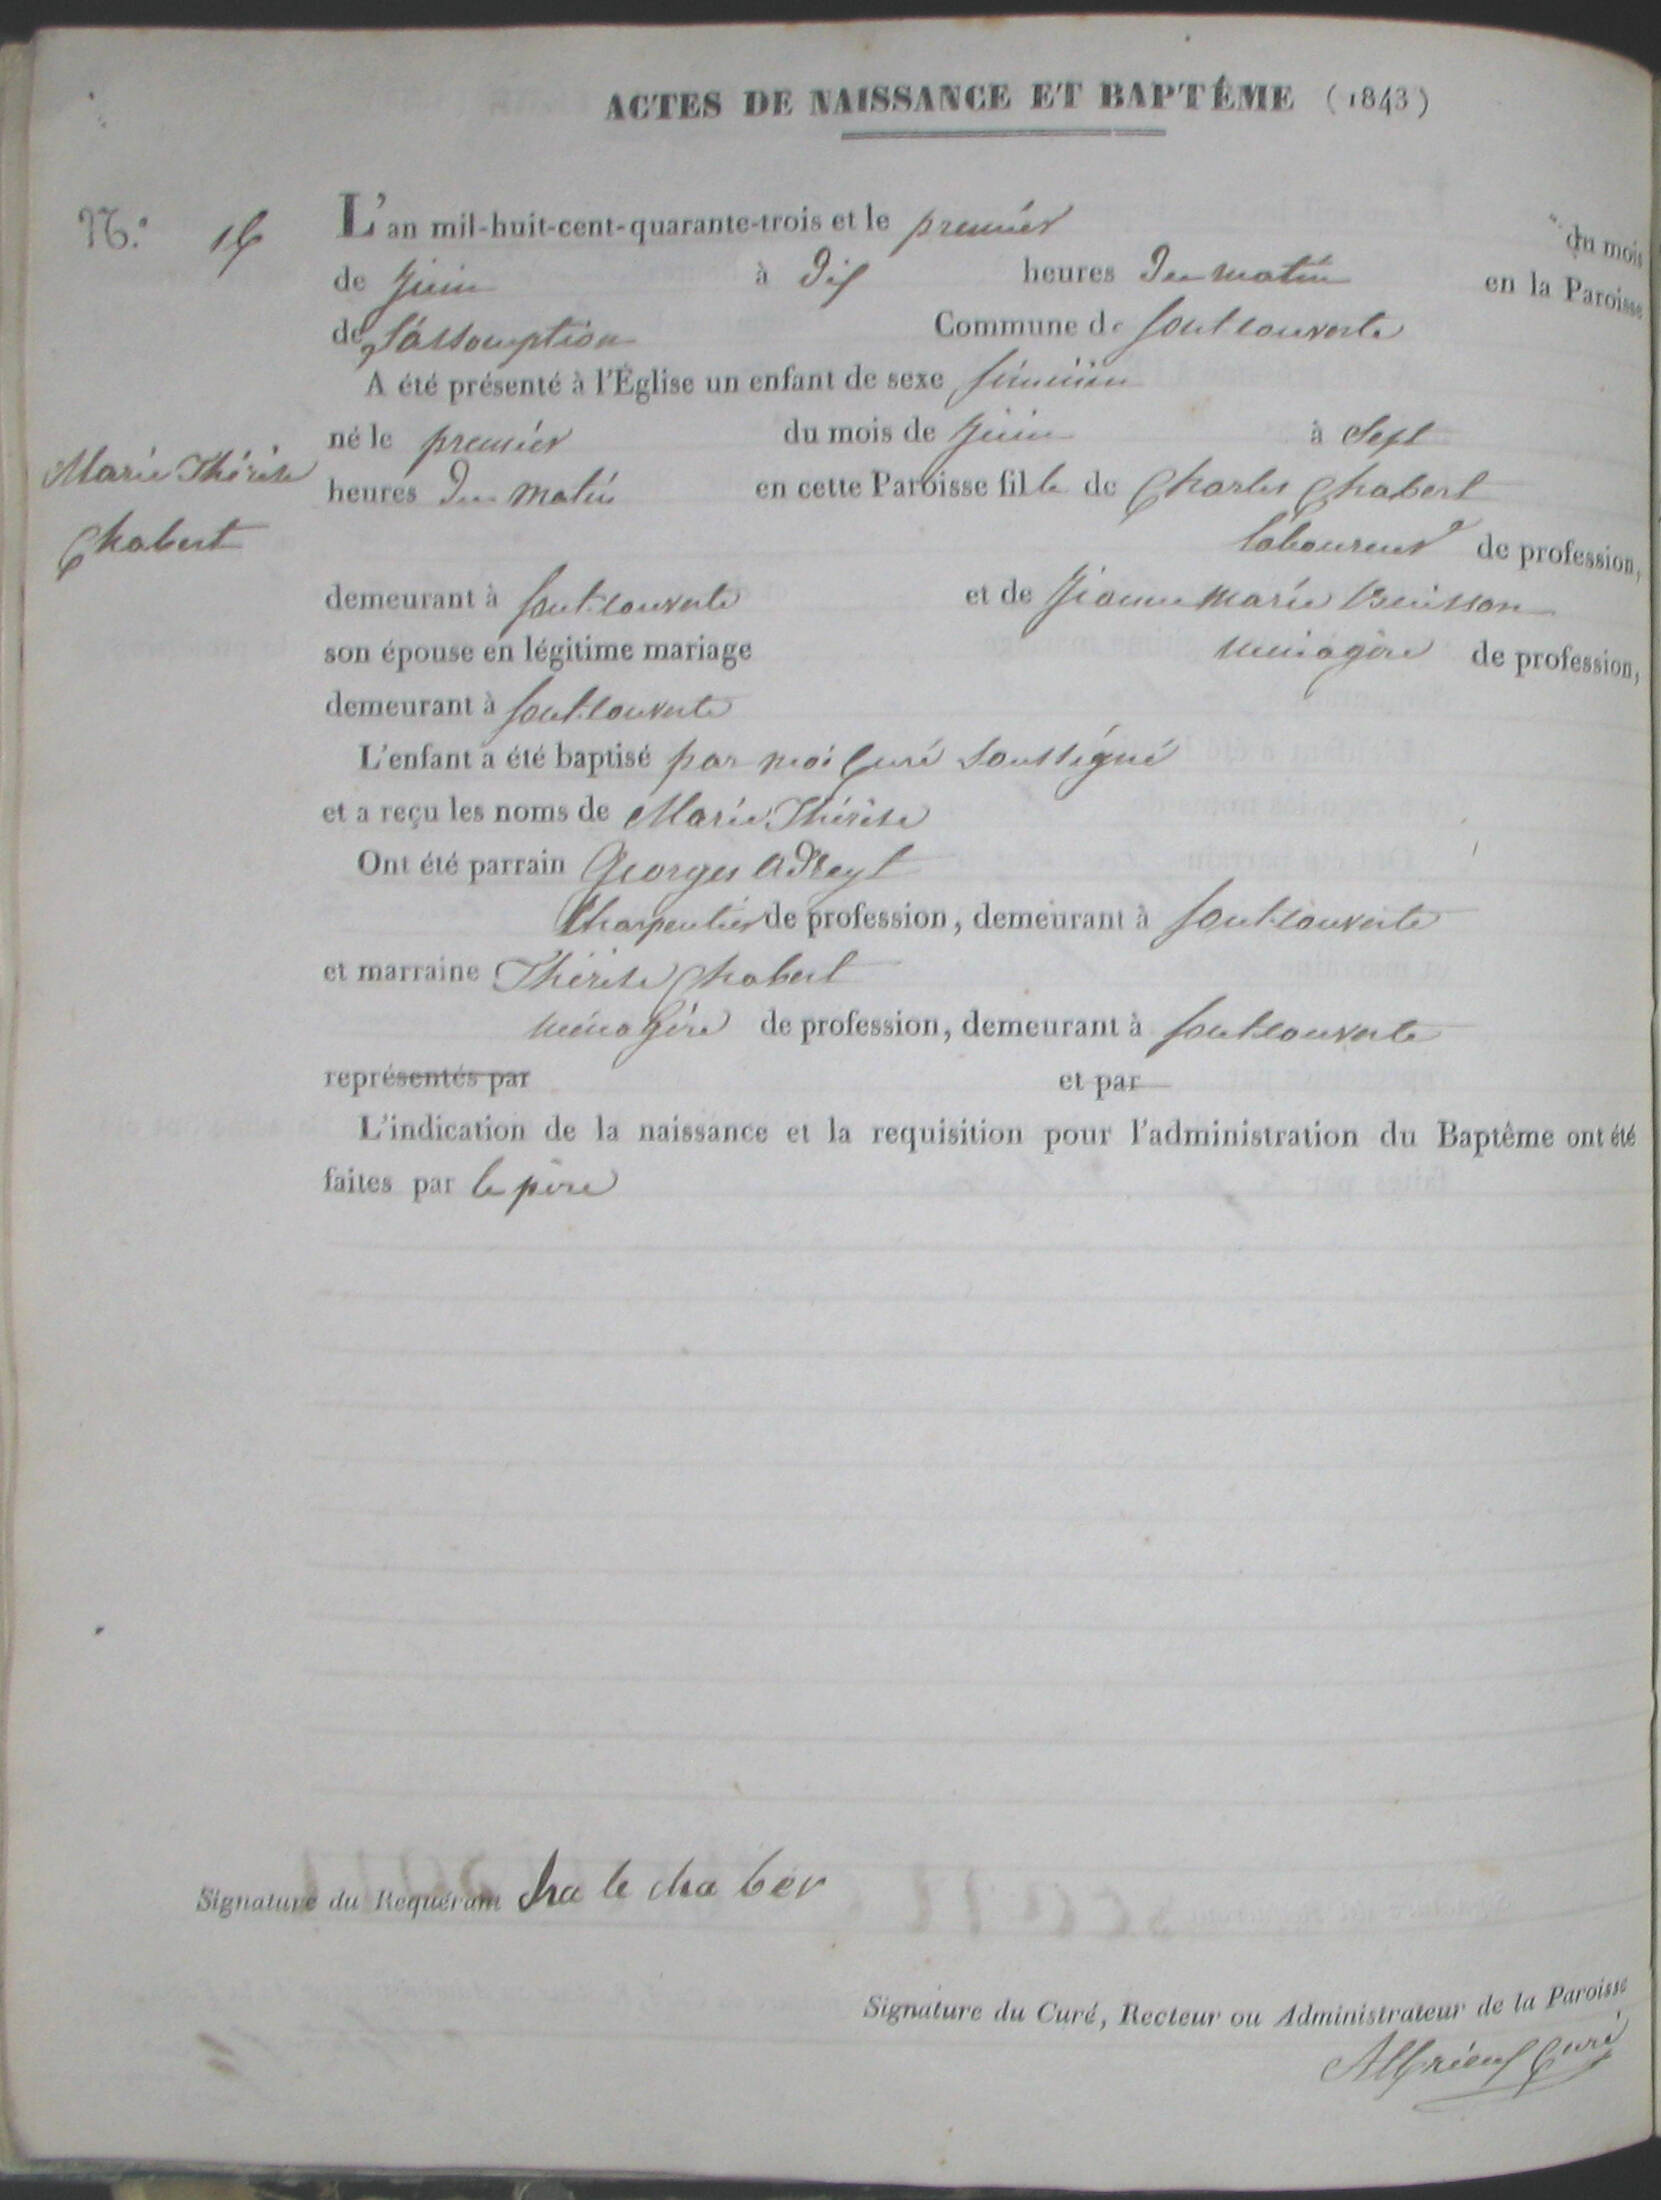 ACTES DE NAISSANCE ET BAPTÊME (1843)
N.º
L'an mil-huit-cent-quarante-trois et le premier du mois
de Juin à Dix heures Du matin en la Paroisse
de L'assomption Commune de fontcouverte
A été présenté à l'Église un enfant de sexe féminin
né le premier du mois de Juin à Sept
Marie Thérèse
heures Du matin en cette Paroisse fille de Charles Chabert
Chabert
laboureur de profession,
demeurant à fontcouverte et de Jeanne Marie Buisson
son épouse en légitime mariage ménagère de profession,
demeurant à fontcouverte
L'enfant a été baptisé par moi Curé soussigné
et a reçu les noms de Marie Thérèse
Ont été parrain Georges
Charpentier de profession, demeurant à fontcouverte
et marraine Thérèse Chabert
ménagère de profession, demeurant à fontcouverte
représentés par et par
L'indication de la naissance et la requisition pour l'administration du Baptême ont été
faites par le père
Signature du Requérant cha le cha ber
Signature du Curé, Recteur ou Administrateur de la Paroisse
Curé